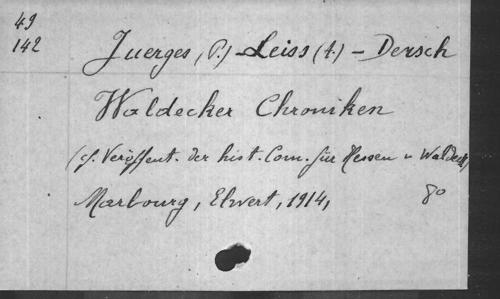 49
142
Juerges, (P.) - Leiss (A.) - Dersch
Waldecker Chroniken
(cf. Veröffent. der hist. Com. für Hessen u Waldeck)
Marbourg, Elwert, 1914, 8o